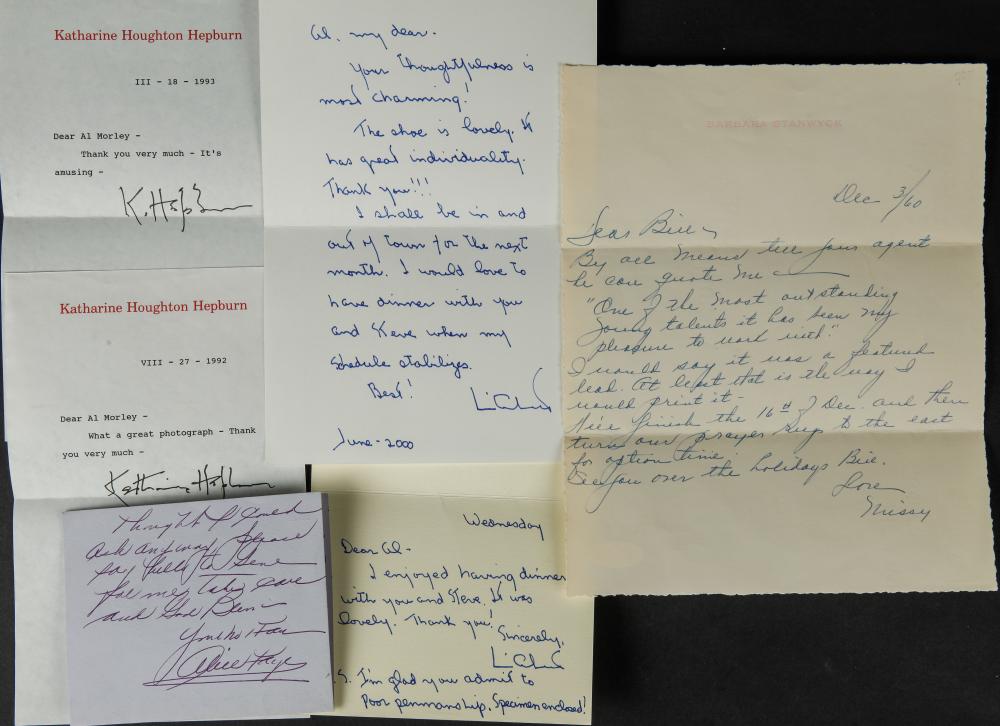 Katharine Houghton Hepburn
III - 18 - 1993
Dear Al Morley -
Thank you very much - It's
amusing -
K. Hepburn
Katharine Houghton Hepburn
VIII - 27 - 1992
Dear Al Morley -
What a great photograph - Thank
you very much -
Katharine Hepburn
Al, my dear.
Your thoughtfulness is
most charming!
The shoe is lovely. It
has great individuality.
Thank you!!!
I shall be in and
out of town for the next
month. I would love to
have dinner with you
and Steve when my
schedule stabilizes.
Best!
June - 2000
BARBARA STANWYCK
Dec 3/60
Dear Bill -
By all means tell your agent
he can quote me -
"One of the most outstanding
young talents it has been my
pleasure to work with".
I would say it was a featured
lead. At least that is the way I
would print it -
finish the 16th of Dec. and then
turn our prayer rug to the east
for option time.
See you over the holidays Bill.
Love
Missy
Thought I would
ask anyway. Please
say hello to Gene
for me. Take care
and God Bless
Alice Faye
Wednesday
Dear Al -
I enjoyed having dinner
with you and Steve. It was
lovely. Thank you!
Sincerely,
S. I'm glad you admit to
poor penmanship. Specimen enclosed!